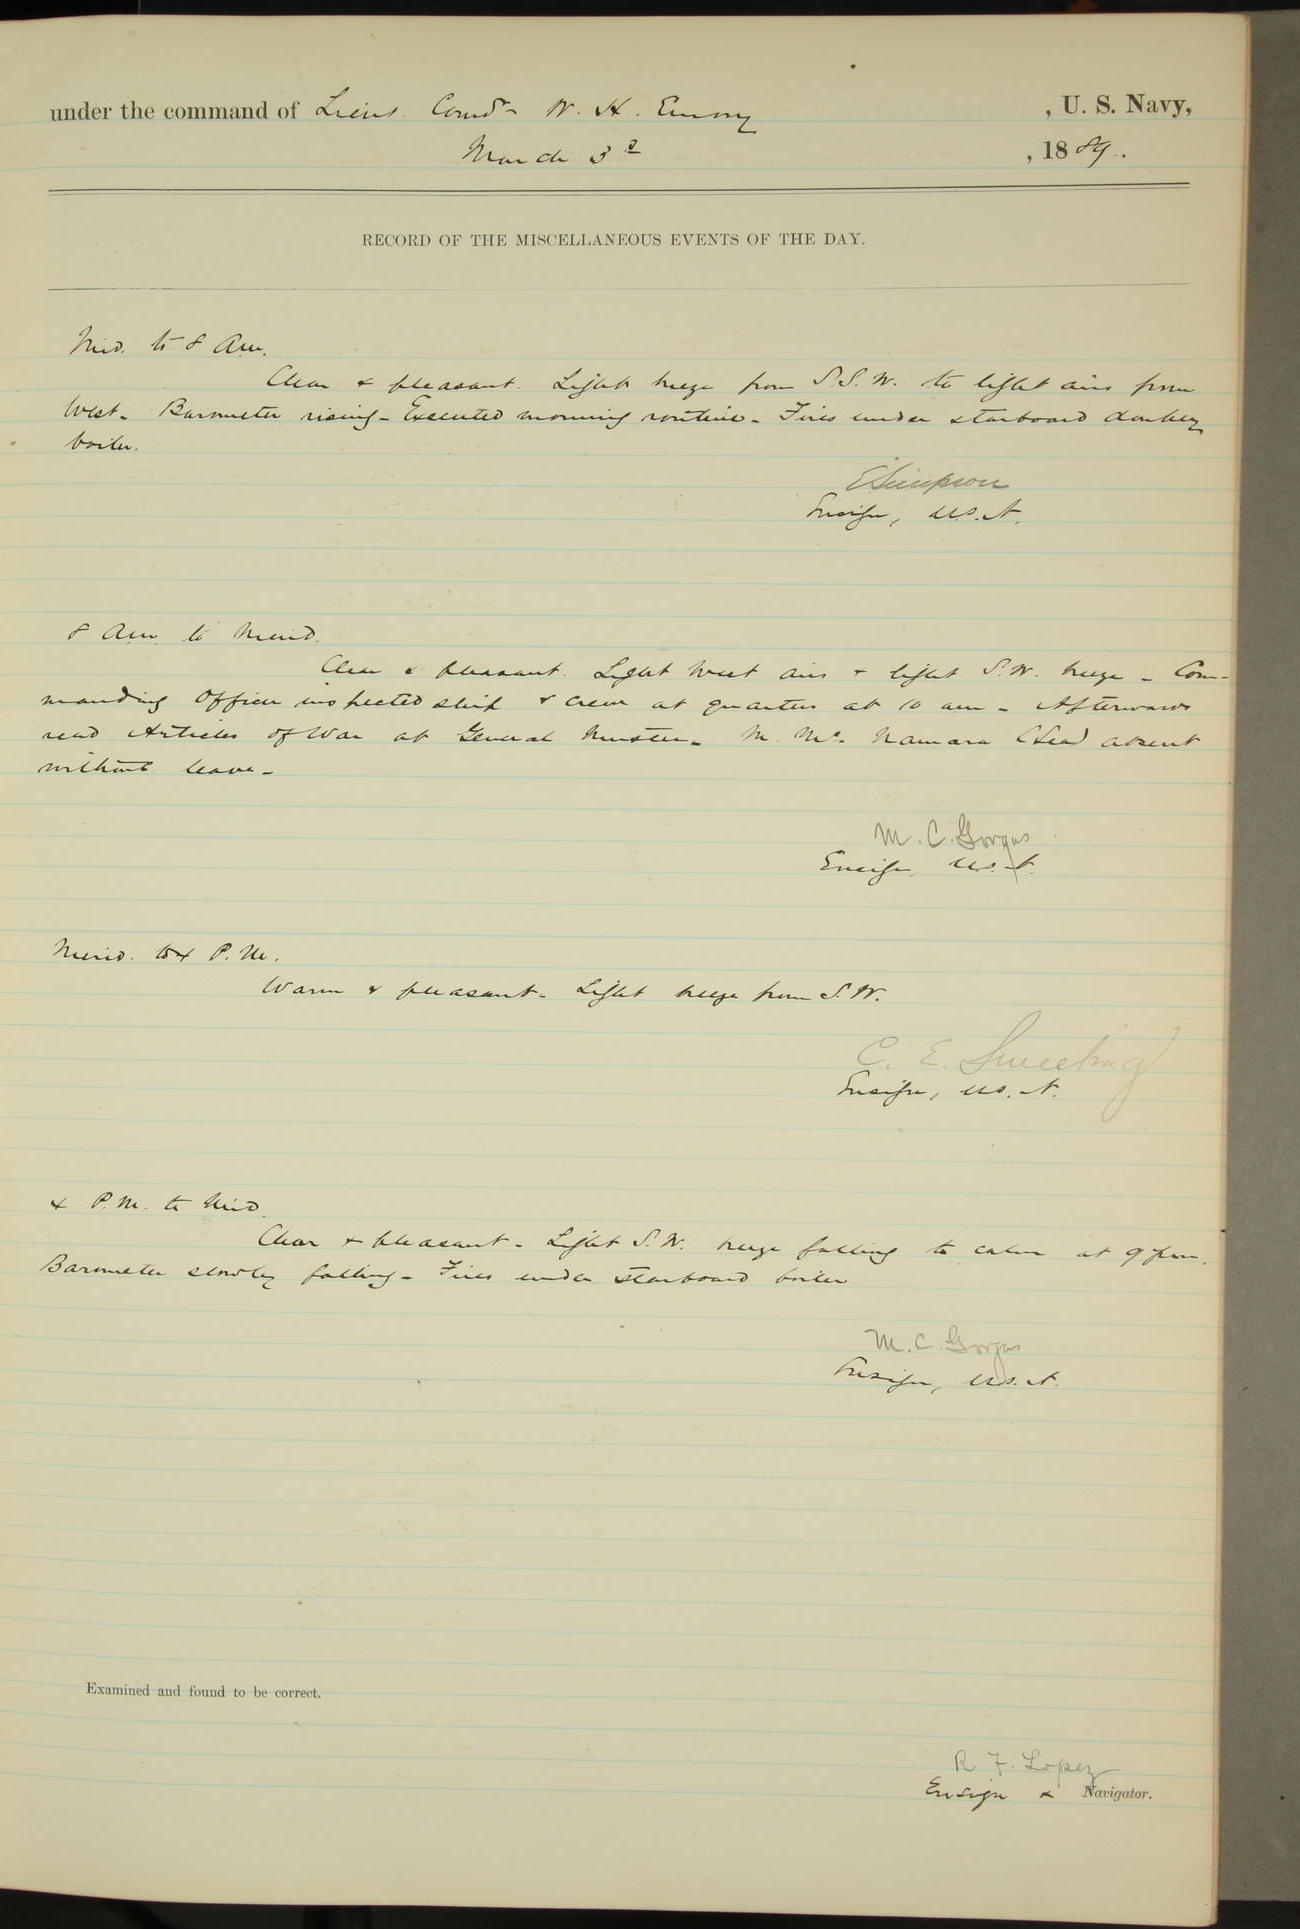 under the command of Lieut. Comdr W. H. Emory , U. S. Navy,
March 3d , 1889.
RECORD OF THE MISCELLANEOUS EVENTS OF THE DAY.
Mid. to 8 Am.
Clear & pleasant. Light breeze from S.S.W. to light airs from
West. Barometer rising - Executed morning routine - Fires under starboard donkey
boiler.
E Simpson
Ensign, U.S.N.
8 Am to Merid.
Clear & pleasant. Light West airs & light S.W. breeze - Com-
manding Officer inspected ship & crew at quarters at 10 am - Afterwards
read Articles of War at General Muster - M. Mc. Namara absent
without leave -
M. C. Gorgas
Ensign, U.S.N.
Merid. to 4 P.M.
Warm & pleasant - Light breeze from S.W.
C. E. Sweeting
Ensign, U.S.N.
4 P.M. to Mid.
Clear & pleasant - Light S.W. breeze falling to calm at 9 pm.
Barometer slowly falling - Fires under starboard boiler
M. C. Gorgas
Ensign, U.S.N.
Examined and found to be correct.
R. F. Lopez
Ensign & Navigator.